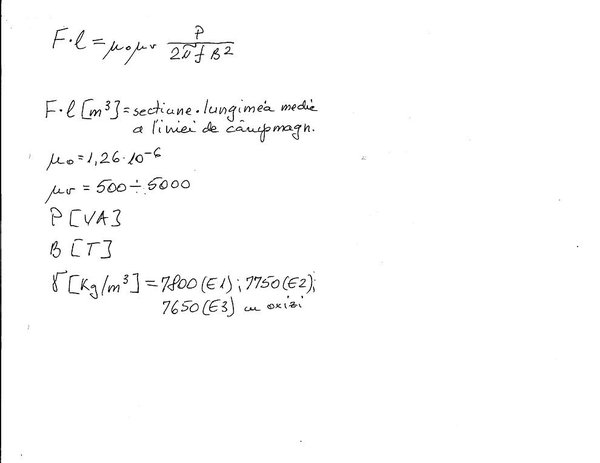 F·l = μo μr P / 2πfB²
F·l [m³] = sectiune·lungimea medie
a liniei de câmp magn.
μo = 1,26·10⁻⁶
μr = 500 ÷ 5000
P [VA]
B [T]
γ [Kg/m³] = 7800 (E1); 7750 (E2);
7650 (E3) cu oxizi